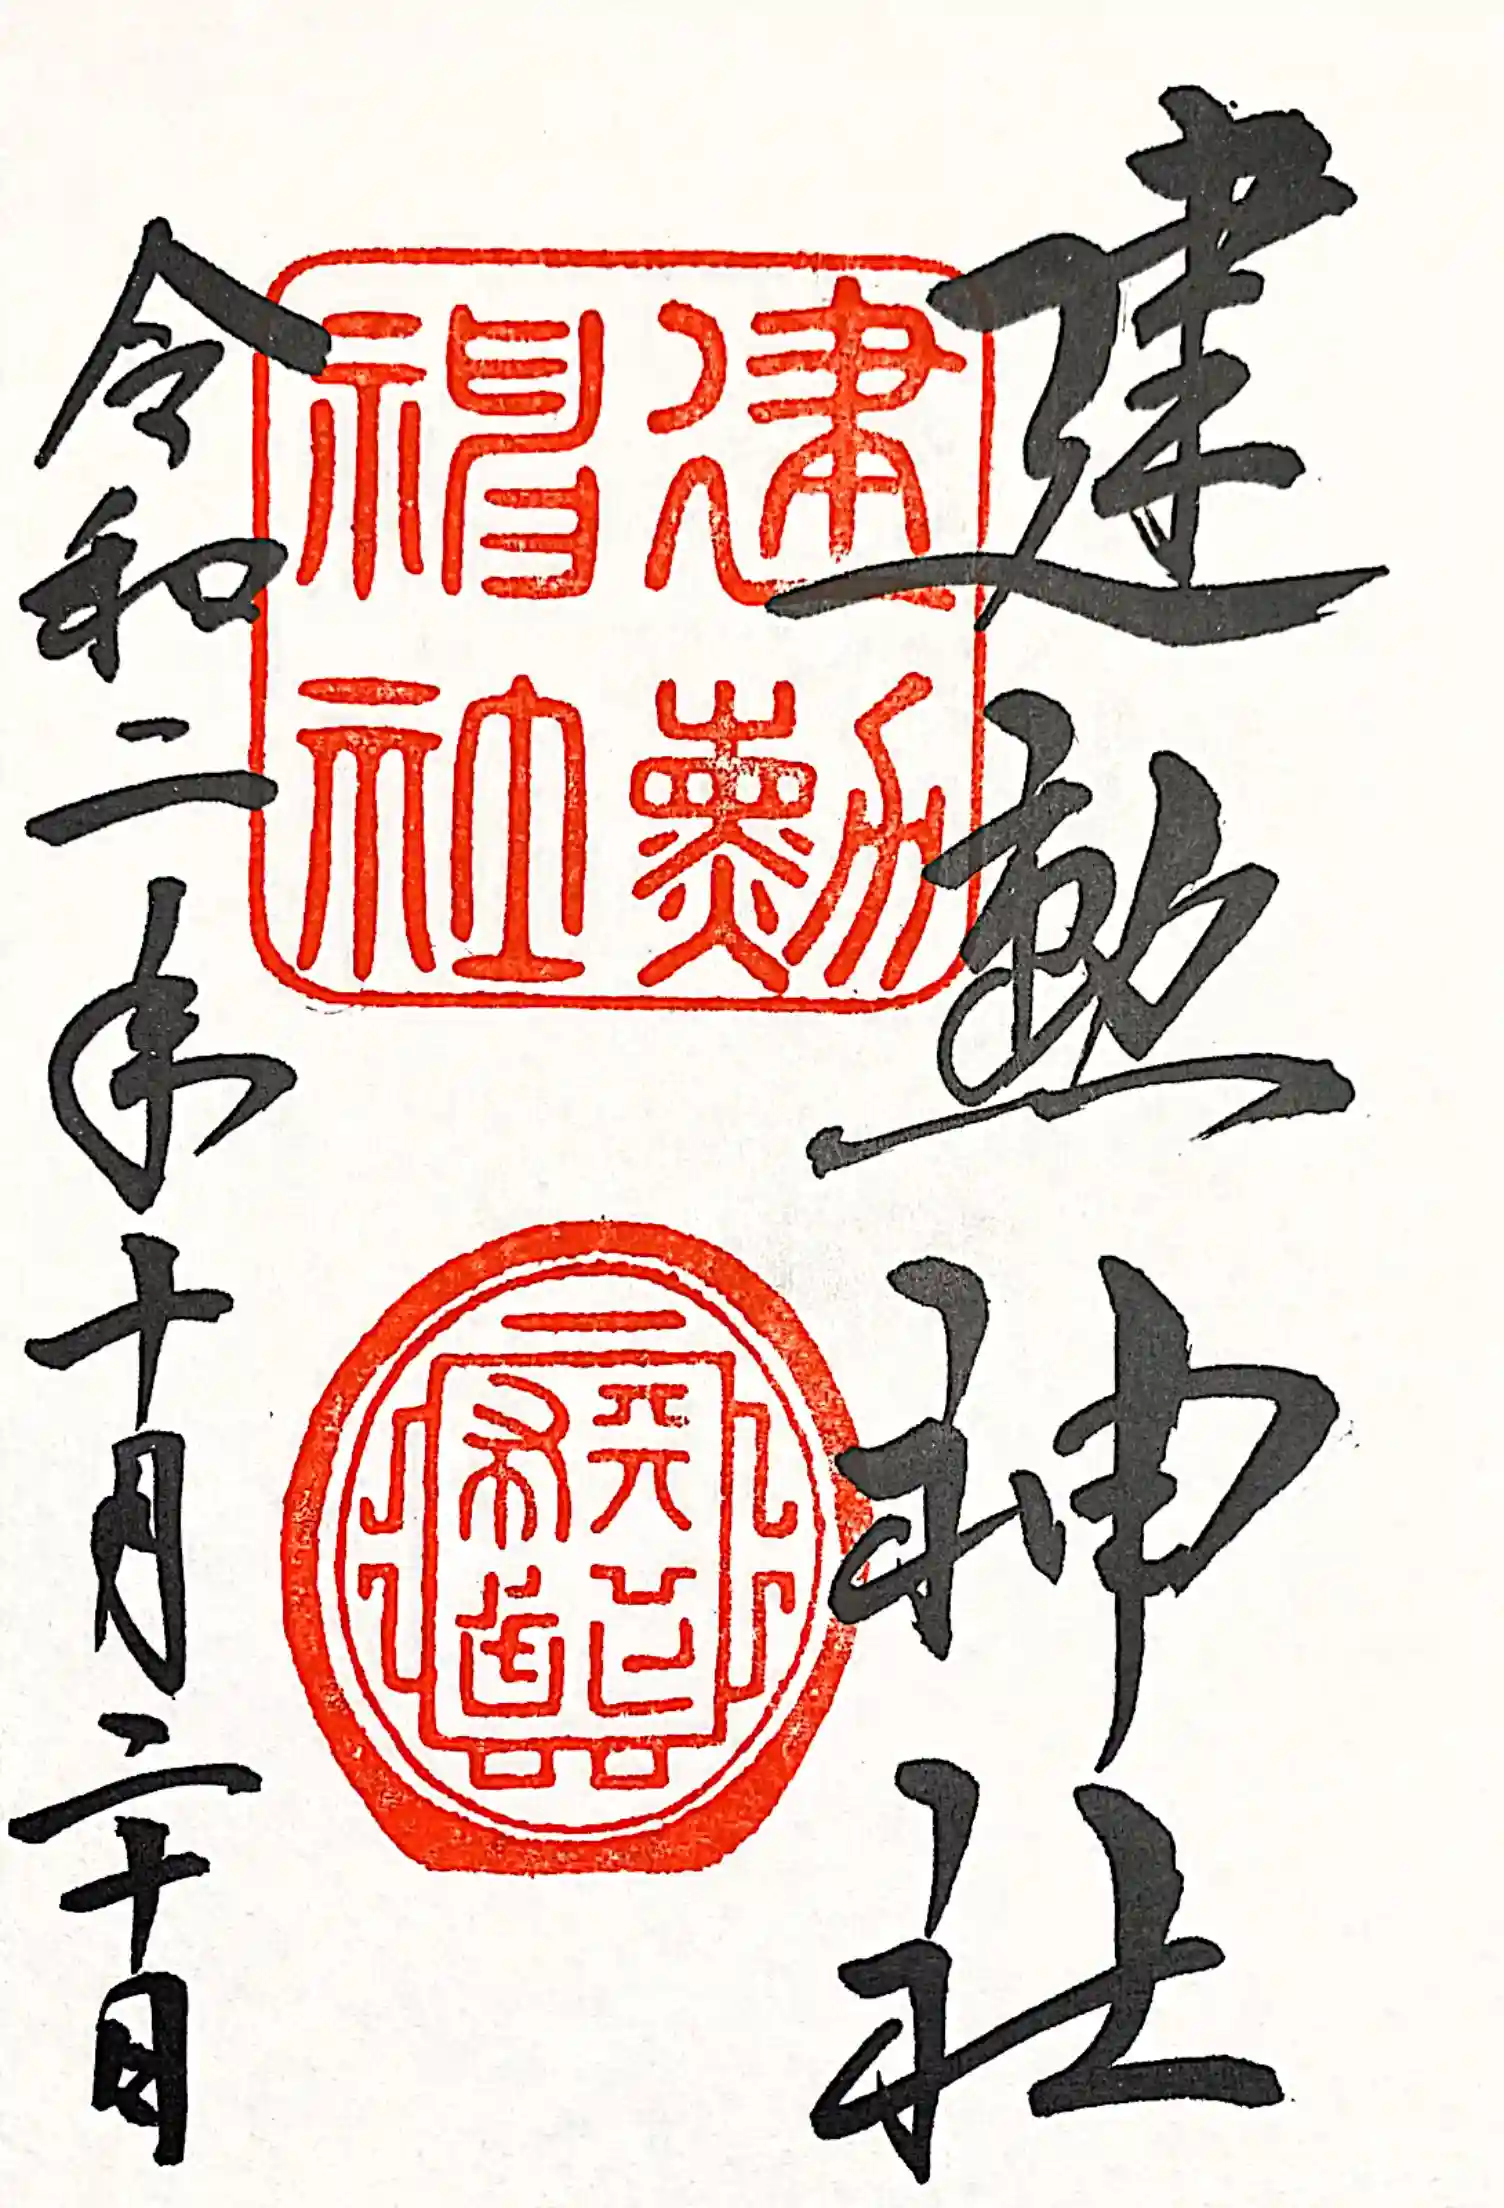 建勲神社
建勳
神社
天下
布武
令和二年十月二十日